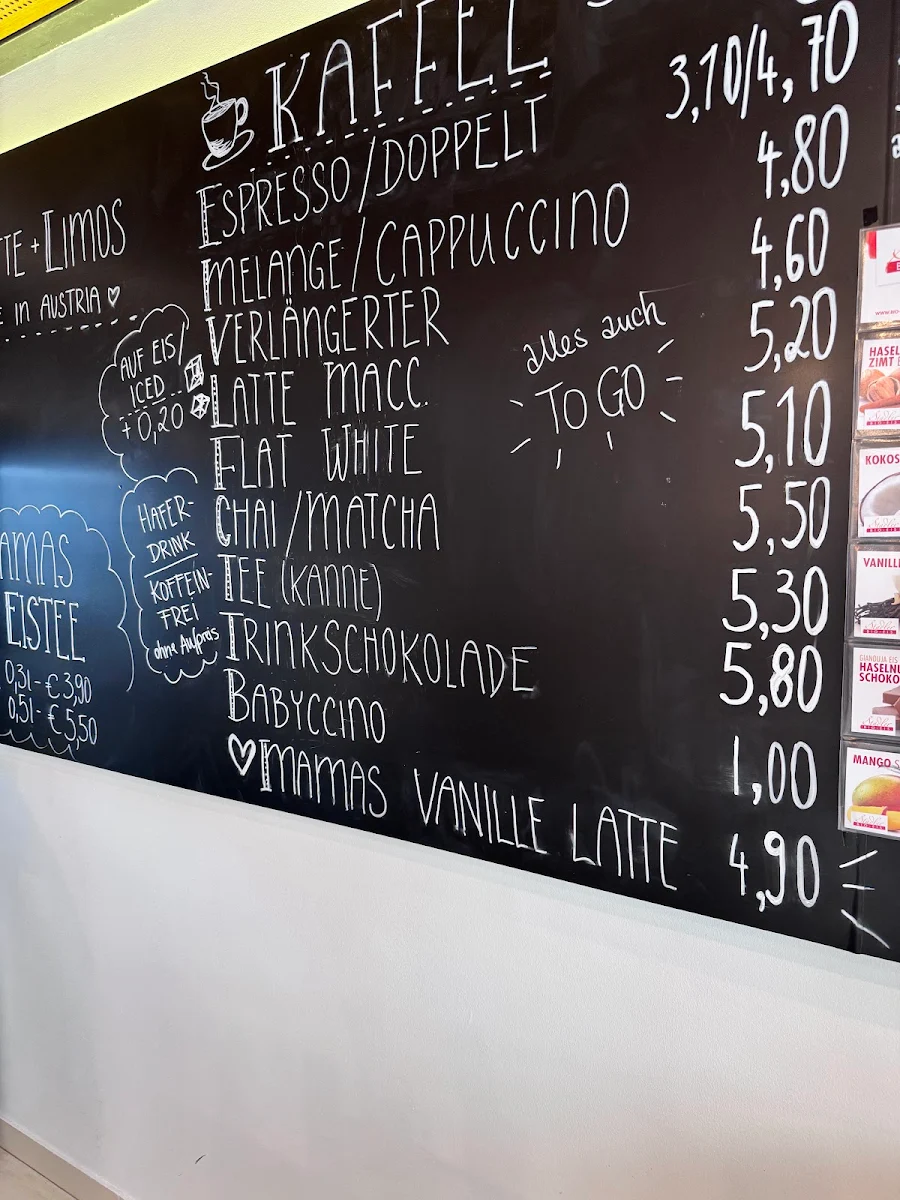 KAFFEE
ESPRESSO/DOPPELT 3,10/4,70
MELANGE/CAPPUCCINO 4,80
VERLÄNGERTER 4,60
LATTE MACC. 5,20
FLAT WHITE 5,10
CHAI/MATCHA 5,50
TEE (KANNE) 5,30
TRINKSCHOKOLADE 5,80
BABYCCINO 1,00
♡ MAMAS VANILLE LATTE 4,90
alles auch
TO GO
+ LIMOS
IN AUSTRIA ♡
AUF EIS/
ICED
+ 0,20
HAFER-
DRINK
KOFFEIN-
FREI
ohne Aufpreis
AMAS
EISTEE
0,3l - € 3,90
0,5l - € 5,50
HASEL
ZIMT
KOKOS
VANILL
HASELNU
SCHOKO
MANGO